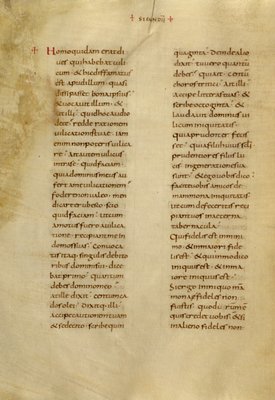 Homo quidam erat di
ues qui habebat uili
cum · & hic diffamatus
est apud illum · quasi
dissipass& bona ipsius
& uocauit illum · &
ait illi · quid hoc audio
de te · redde rationem
uilicationis tuae · iam
enim non poteris uilica
re · Ait autem uilicus
intra se · quid faciam
quia dominus meus au
fert a me uilicationem
fodere non ualeo · men
dicare erubesco · scio
quid faciam · ut cum
amotus fuero a uilica
tione · recipiant me in
domos suas · Conuoca
tis itaq· singulis debito
ribus domini sui · dice
bat primo · quantum
debes domino meo ·
at ille dixit · centum ca
dos olei · dixitq· illi
accipe cautionem tuam
& sede cito · scribe quin
quaginta · deinde alio
dixit · tu uero quantū
debes · qui ait · centū
choros tritici · ait illi
accipe litteras tuas · &
scribe octoginta · &
laudauit dominus ui
licum iniquitatis ·
quia prudenter fecis
s& · quia filii huius scli
prudentiores filiis lu
cis in generatione sua
sunt · & ego uobis dico
facite uobis amicos de
mammona iniquitatis
ut cum defeceritis reci
piant uos in aeterna
tabernacula
Qui fidelis est in mini
mo · & in maiori fide
lis est · & qui in modico
iniquus est · & in ma
iore iniquus est ·
Si ergo in iniquo mā
mona fideles non
fuistis quod uerum ē
quis credet uobis · & si
in alieno fideles non